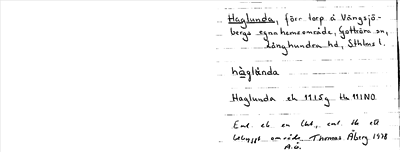 Haglunda, förr torp å Vängsjö-
bergs egna hemsområde, Gottröra sn,
Långhundra hd, Sthlms l.
hàglúnda
Haglunda ek 11I5g Hk 11INO
Enl. ek en lht, enl. Hk ett
bebyggt område Thomas Åberg 1978
A.Ö.